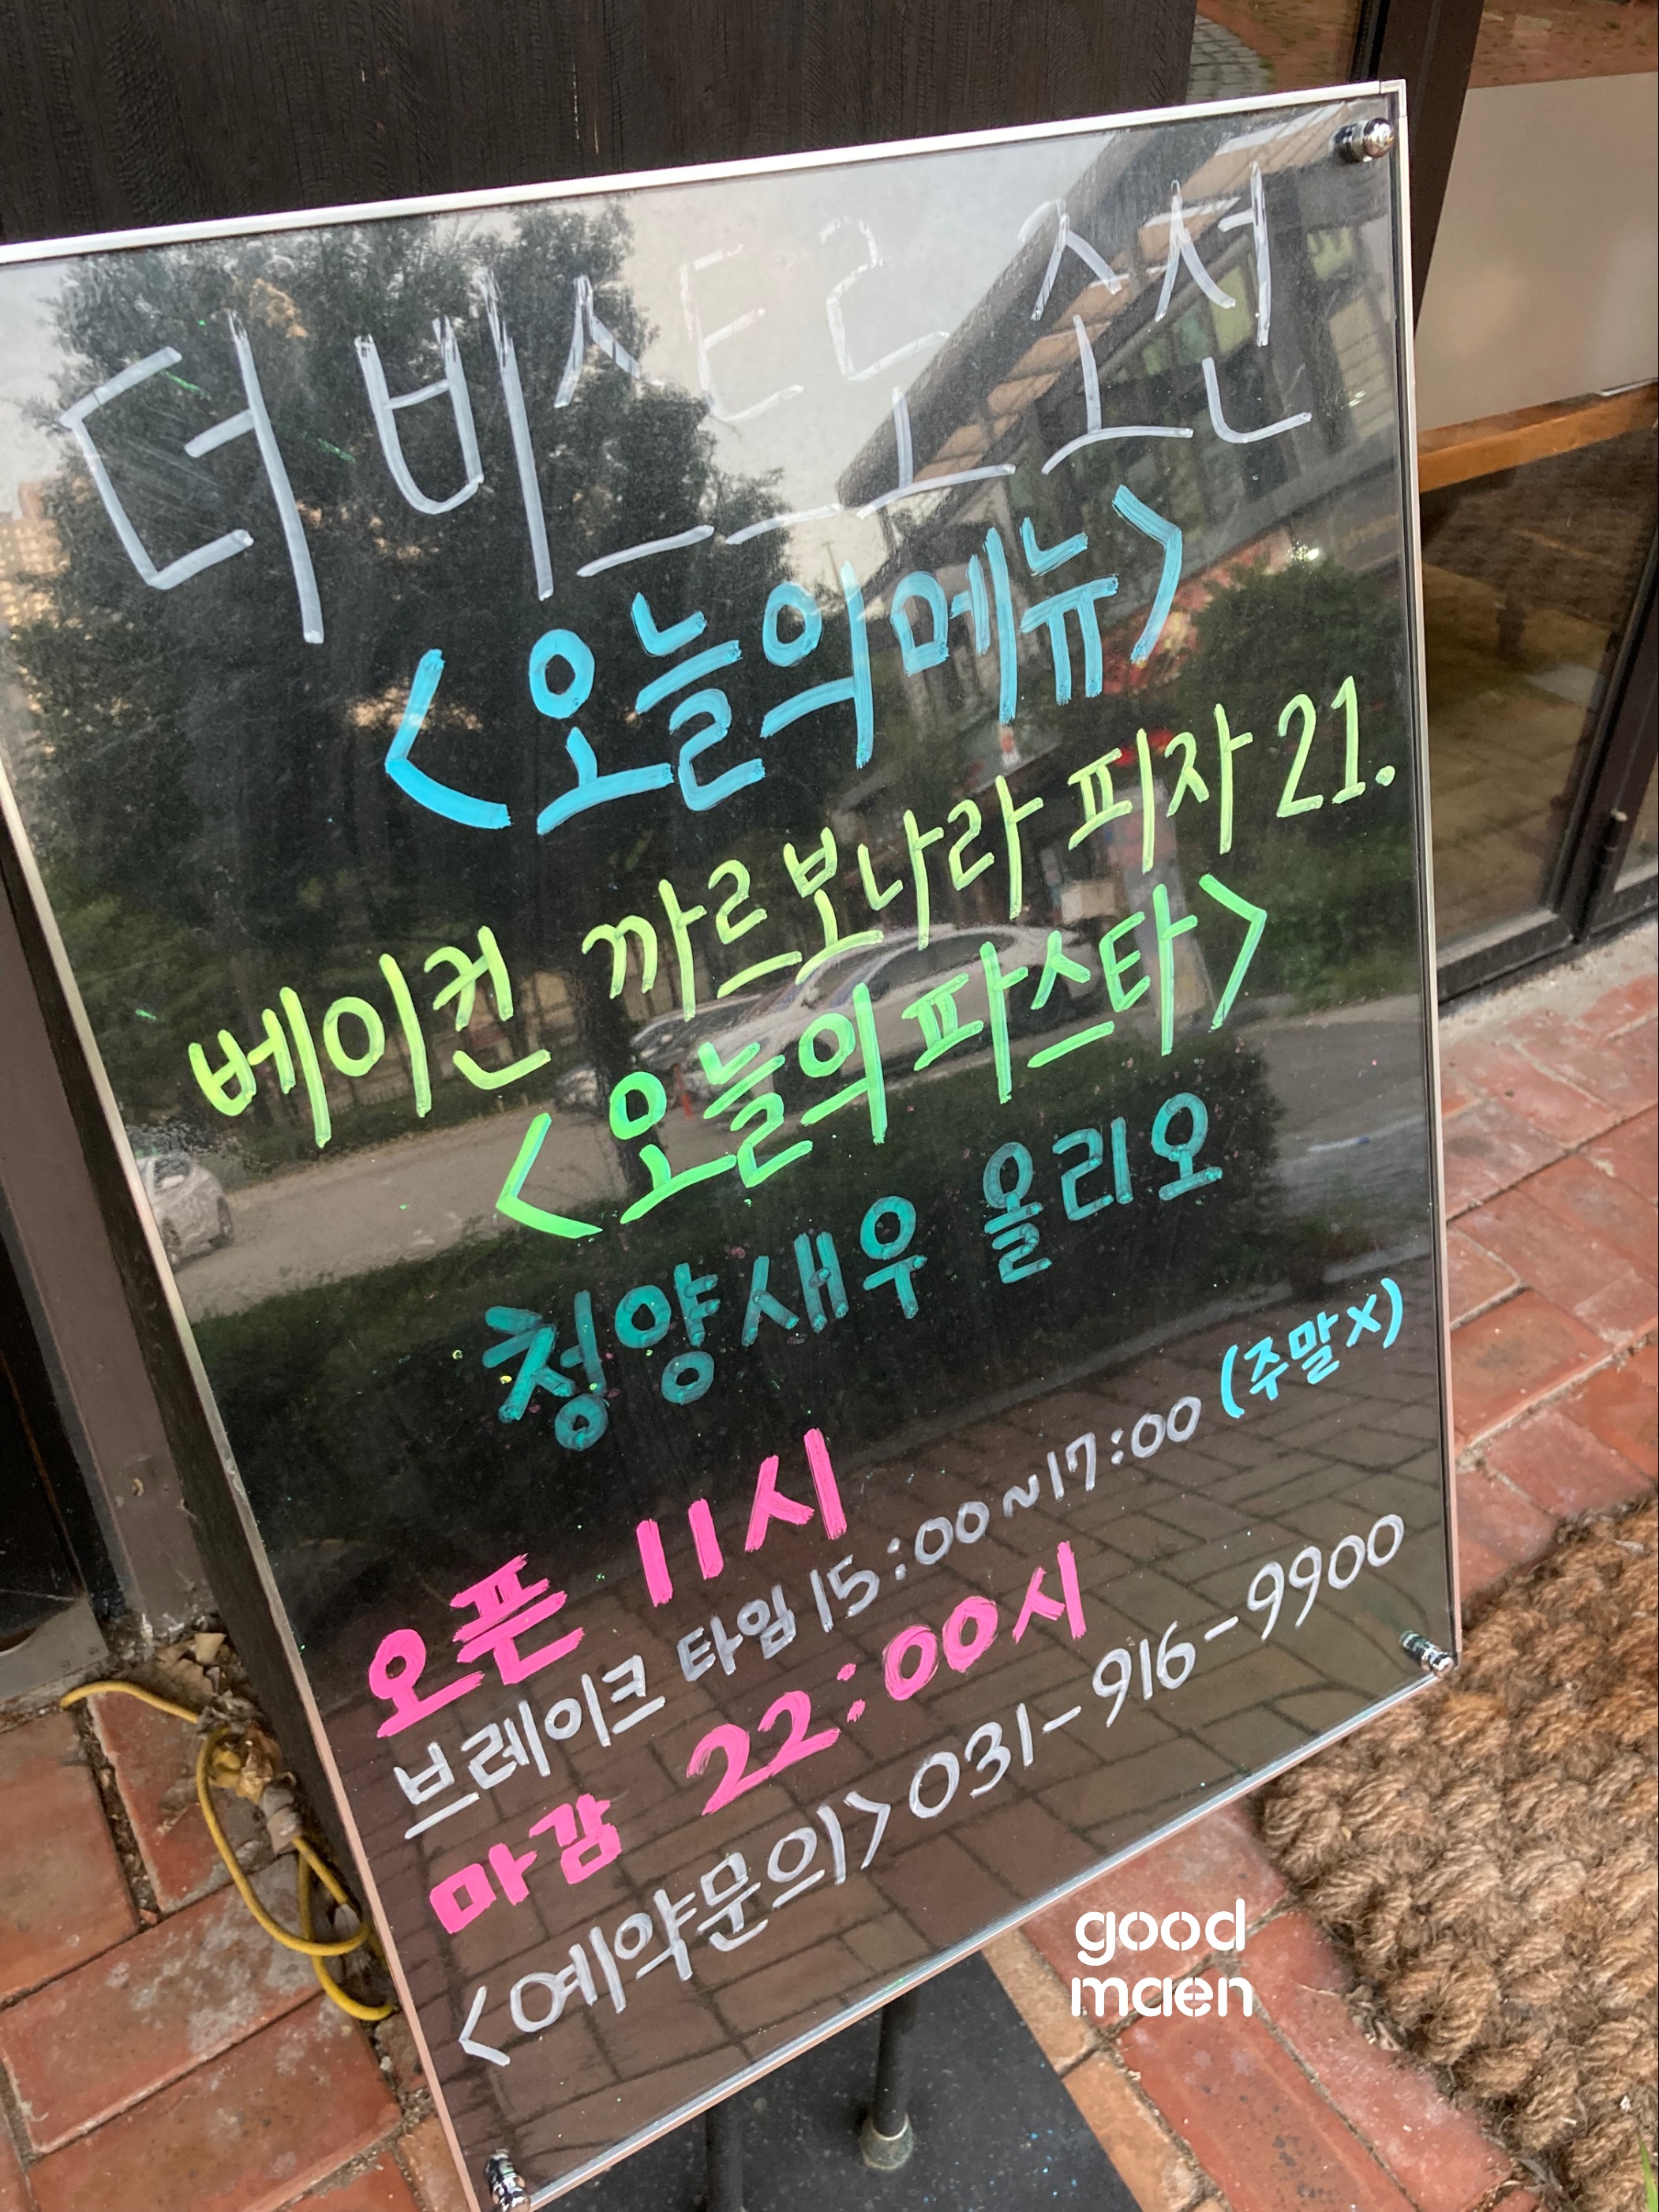 더 비스트로 소선
<오늘의메뉴>
베이컨 까르보나라 피자 21.
<오늘의 파스타>
청양새우 올리오
오픈 11시
브레이크 타임 15:00~17:00 (주말X)
마감 22:00시
<예약문의> 031-916-9900
good
maen